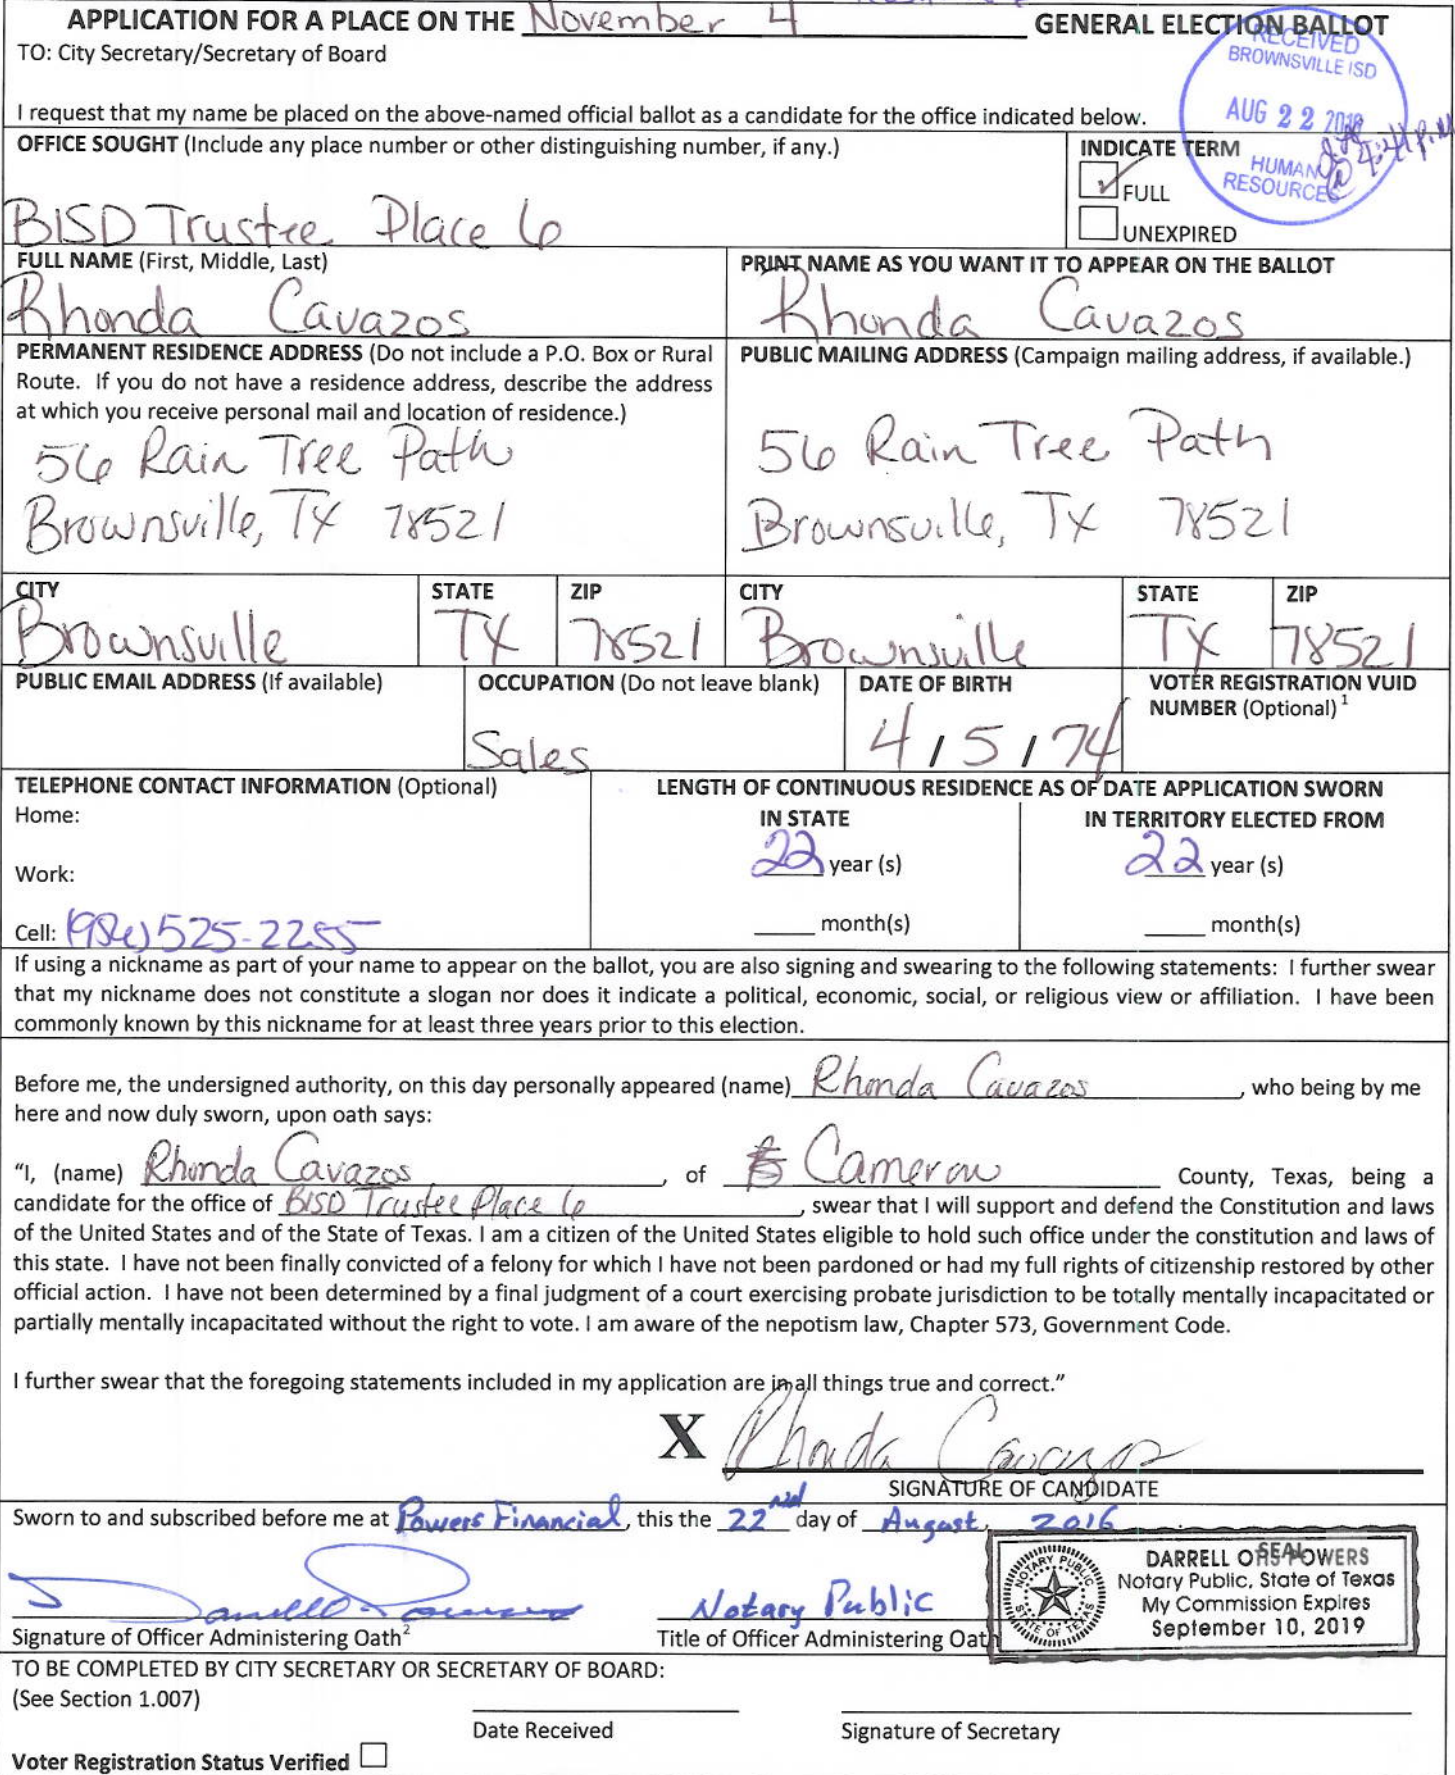 APPLICATION FOR A PLACE ON THE November 4 GENERAL ELECTION BALLOT
TO: City Secretary/Secretary of Board
RECEIVED
BROWNSVILLE ISD
AUG 22
HUMAN
RESOURCES
4:41 P.M
I request that my name be placed on the above-named official ballot as a candidate for the office indicated below.
OFFICE SOUGHT (Include any place number or other distinguishing number, if any.)
BISD Trustee Place 6
INDICATE TERM
FULL
UNEXPIRED
FULL NAME (First, Middle, Last)
Rhonda Cavazos
PRINT NAME AS YOU WANT IT TO APPEAR ON THE BALLOT
Rhonda Cavazos
PERMANENT RESIDENCE ADDRESS (Do not include a P.O. Box or Rural
Route. If you do not have a residence address, describe the address
at which you receive personal mail and location of residence.)
56 Rain Tree Path
Brownsville, TX 78521
PUBLIC MAILING ADDRESS (Campaign mailing address, if available.)
56 Rain Tree Path
Brownsville, TX 78521
CITY STATE ZIP
Brownsville TX 78521
CITY STATE ZIP
Brownsville TX 78521
PUBLIC EMAIL ADDRESS (If available)
OCCUPATION (Do not leave blank)
Sales
DATE OF BIRTH
4/5/74
VOTER REGISTRATION VUID
NUMBER (Optional) 1
TELEPHONE CONTACT INFORMATION (Optional)
Home:
Work:
Cell: (956) 525-2255
LENGTH OF CONTINUOUS RESIDENCE AS OF DATE APPLICATION SWORN
IN STATE
22 year (s)
month(s)
IN TERRITORY ELECTED FROM
22 year (s)
month(s)
If using a nickname as part of your name to appear on the ballot, you are also signing and swearing to the following statements: I further swear
that my nickname does not constitute a slogan nor does it indicate a political, economic, social, or religious view or affiliation. I have been
commonly known by this nickname for at least three years prior to this election.
Before me, the undersigned authority, on this day personally appeared (name) Rhonda Cavazos, who being by me
here and now duly sworn, upon oath says:
"I, (name) Rhonda Cavazos, of Cameron County, Texas, being a
candidate for the office of BISD Trustee Place 6, swear that I will support and defend the Constitution and laws
of the United States and of the State of Texas. I am a citizen of the United States eligible to hold such office under the constitution and laws of
this state. I have not been finally convicted of a felony for which I have not been pardoned or had my full rights of citizenship restored by other
official action. I have not been determined by a final judgment of a court exercising probate jurisdiction to be totally mentally incapacitated or
partially mentally incapacitated without the right to vote. I am aware of the nepotism law, Chapter 573, Government Code.
I further swear that the foregoing statements included in my application are in all things true and correct."
X Rhonda Cavazos
SIGNATURE OF CANDIDATE
Sworn to and subscribed before me at Powers Financial, this the 22nd day of August, 2016
Signature of Officer Administering Oath2
Notary Public
Title of Officer Administering Oath
SEAL
NOTARY PUBLIC
STATE OF TEXAS
DARRELL POWERS
Notary Public, State of Texas
My Commission Expires
September 10, 2019
TO BE COMPLETED BY CITY SECRETARY OR SECRETARY OF BOARD:
(See Section 1.007)
Date Received
Signature of Secretary
Voter Registration Status Verified